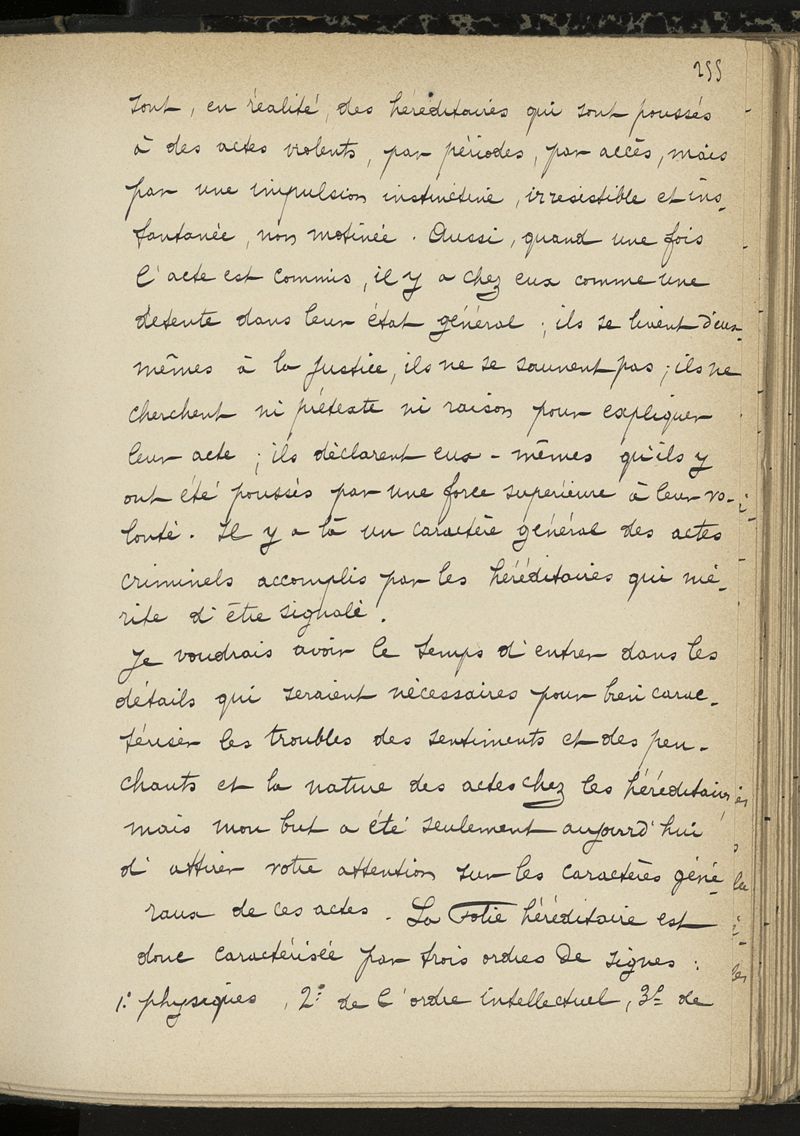 255
sont, en réalité, des héréditaires qui sont poussés
à des actes violents, par périodes, par accès, mais
par une impulsion instinctive, irresistible et ins-
tantanée, non motivée. Aussi, quand une fois
l'acte est commis, il y a chez eux comme une
détente dans leur état général ; ils se livrent d'eux-
mêmes à la justice, ils ne se sauvent pas ; ils ne
cherchent ni prétexte ni raison pour expliquer
leur acte ; ils déclarent eux-mêmes qu'ils y
ont été poussés par une force supérieure à leur vo-
lonté. Il y a là un caractère général des actes
criminels accomplis par les héréditaires qui mé-
rite d'être signalé.
Je voudrais avoir le temps d'entrer dans les
détails qui seraient nécessaires pour bien carac-
tériser les troubles des sentiments et des pen-
chants et la nature des actes chez les héréditaires,
mais mon but a été seulement aujourd'hui
d'attirer votre attention sur les caractères géné-
raux de ces actes. La Folie héréditaire est
donc caractérisée par trois ordres de signes :
1.° physiques, 2.° de l'ordre intellectuel, 3.° de